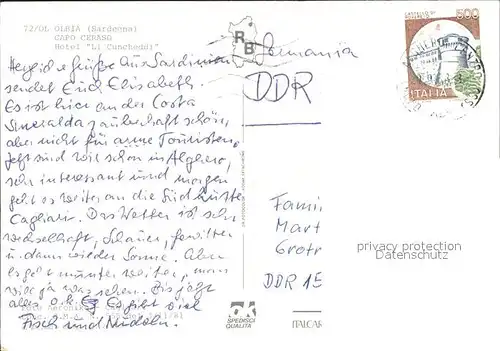 72/OL OLBIA (Sardegna)
CAPO CERASO
Hotel "Li Cuncheddi"
Herzliche Grüße aus Sardinien
sendet Euch Elisabeth.
Es ist hier an der Costa
Smeralda zauberhaft schön,
aber nicht für arme Touristen.
Jetzt sind wir schon in Alghero,
sehr interessant und morgen
geht es weiter an die Südküste
Cagliari. Das Wetter ist sehr
wechselhaft, Schauer, Gewitter
u. dann wieder Sonne. Aber
es geht munter weiter, man
will ja was sehen. Bis jetzt
alles o.k. Es gibt viel
Fisch und Nudeln.
RB
Germania
DDR
500
ITALIA
Famil
Mart
Grotr
DDR 15
privacy protection
Datenschutz
SPEDISCI
QUALITÀ
ITALCAR